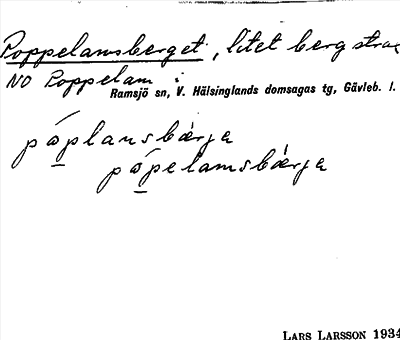 Poppelamsberget, litet berg strax
NO Poppelam i
Ramsjö sn, V. Hälsinglands domsagas tg, Gävleb. l.
pòplansbærja
pòpelamsbærja
LARS LARSSON 1934